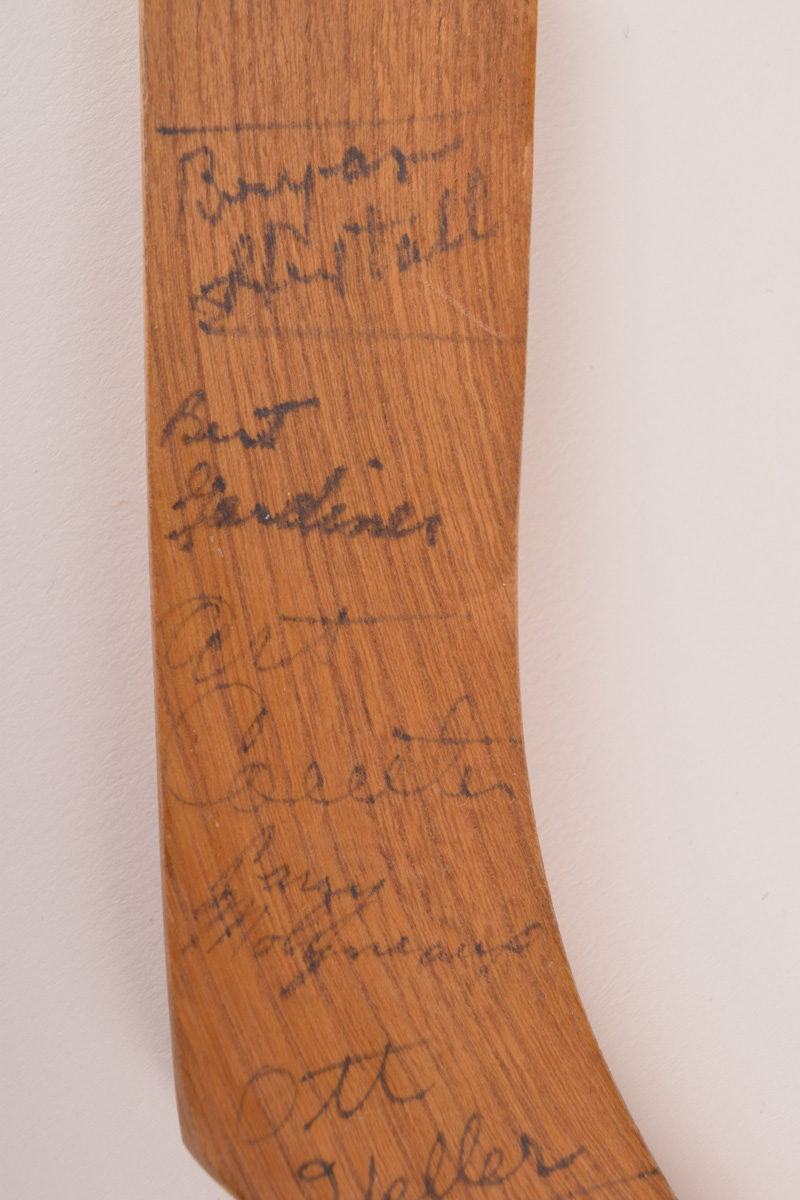 Bryan
Hextall
Bert
Gardiner
Art
Coulter
Larry
Molyneaux
Ott
Heller